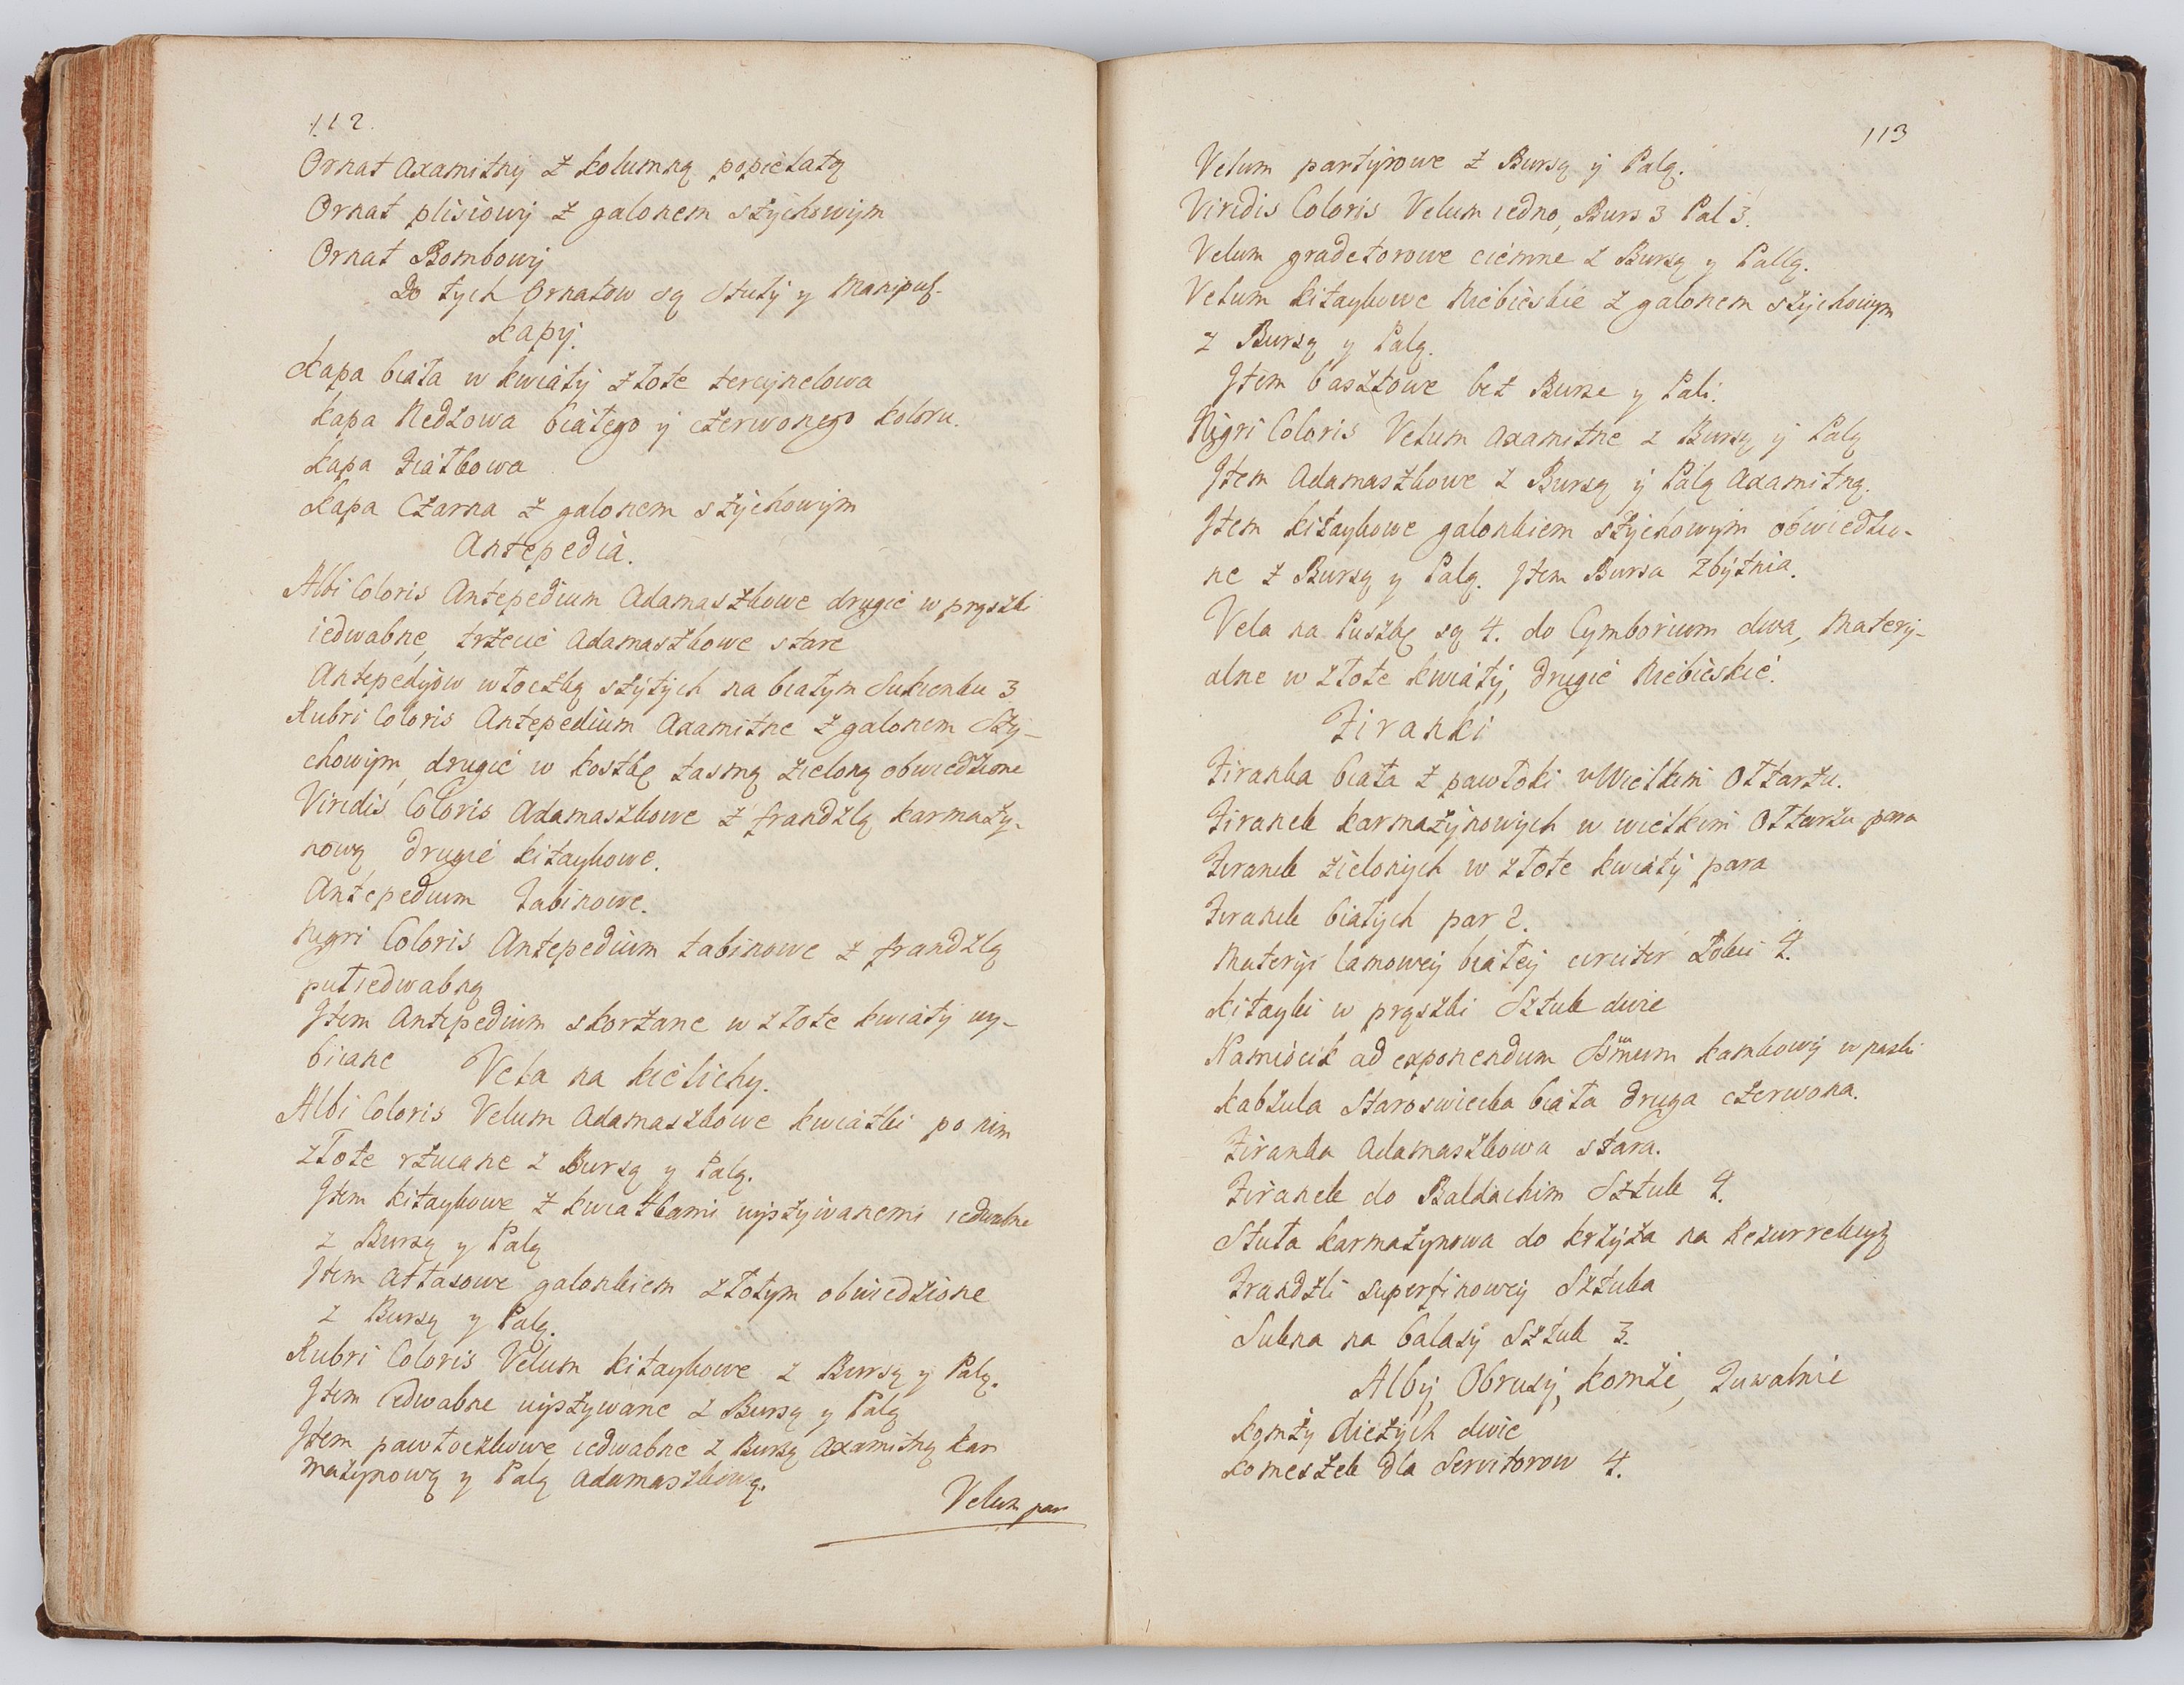 112.
Ornat Axamitny z kolumną popielatą
Ornat plisiowy z galonem szychowym
Ornat Bombowy
Do tych Ornatow są Stuły y Manipuł.
Kapy.
Kapa biała w kwiaty złote tercynelowa
Kapa Nedzowa białego y czerwonego koloru.
Kapa Żałbowa
Kapa Czarna z galonem szychowym
Antepedia.
Albi Coloris Antepedium Adamaszkowe drugie w prąszki
iedwabne, trzecie Adamaszkowe stare
Antepedyow włoczką szytych na białym Sukienku 3
Rubri Coloris Antepedium Axamitne z galonem Szy-
chowym, drugie w kostkę tasmą zieloną obwiedzione
Viridis Coloris Adamaszkowe z frandzlą karmazy-
nową drugie kitaykowe.
Antepedium Tabinowe.
Nigri Coloris Antepedium tabinowe z frandzlą
pułiedwabną
Item Antepedium skorzane w złote kwiaty wy-
bicane
Vela na kielichy.
Albi Coloris Velum Adamaszkowe kwiatki po nim
złote rzucane z Bursą y Palą.
Item kitaykowe z kwiatkami wyszywanemi iedwabne
z Bursą y Palą
Item Atłasowe galonkiem złotym obwiedzione
z Bursą y Palą.
Rubri Coloris Velum kitaykowe z Bursą y Palą.
Item iedwabne wyszywane z Bursą y Palą
Item pawłoczkowe iedwabne z Bursą Axamitną kar
mazynową y Palą Adamaszkową.
Velum par
113
Velum partyrowe z Bursą y Palą.
Viridis Coloris Velum iedno, Burs 3 Pal 3.
Velum gradetorowe ciemne z Bursą y Pallą.
Velum kitaykowe Niebieskie z galonem szychowym
z Bursą y Palą.
Item basztowe bez Burse y Pali.
Nigri Coloris Velum Axamitne z Bursą y Palą
Item Adamaszkowe z Bursą y Palą Axamitną.
Item kitaykowe galonkiem szychowym obwiedzio-
ne z Bursą y Palą. Item Bursa Zbytnia.
Vela na Puszkę są 4. do Cymborium dwa, Matery-
alne w złote kwiaty, drugie Niebieskie.
Firanki
Firanka biała z pawłoki w Wielkim Ołtarzu.
Firanek karmazynowych w wielkim Ołtarzu para
Firanek zielonych w złote kwiaty para
Firanek białych par 2.
Materyi lamowey białey circiter Łokci 4.
Kitayki w prąszki Sztuk dwie
Namiocik ad exponendum SSmum kamkowy w paski
Kabzula Staroswiecka biała druga czerwona.
Firanka Adamaszkowa stara.
Firanek do Baldachim Sztuk 4.
Stuła karmazynowa do krzyża na Rezurrekcyą
Frandzli superfinowey Sztuka
Sukna na balasy Sztuk 3.
Alby, Obrusy, komże, Tuwalnie
Komży dieżych dwie
Komeszek dla Servitorow 4.